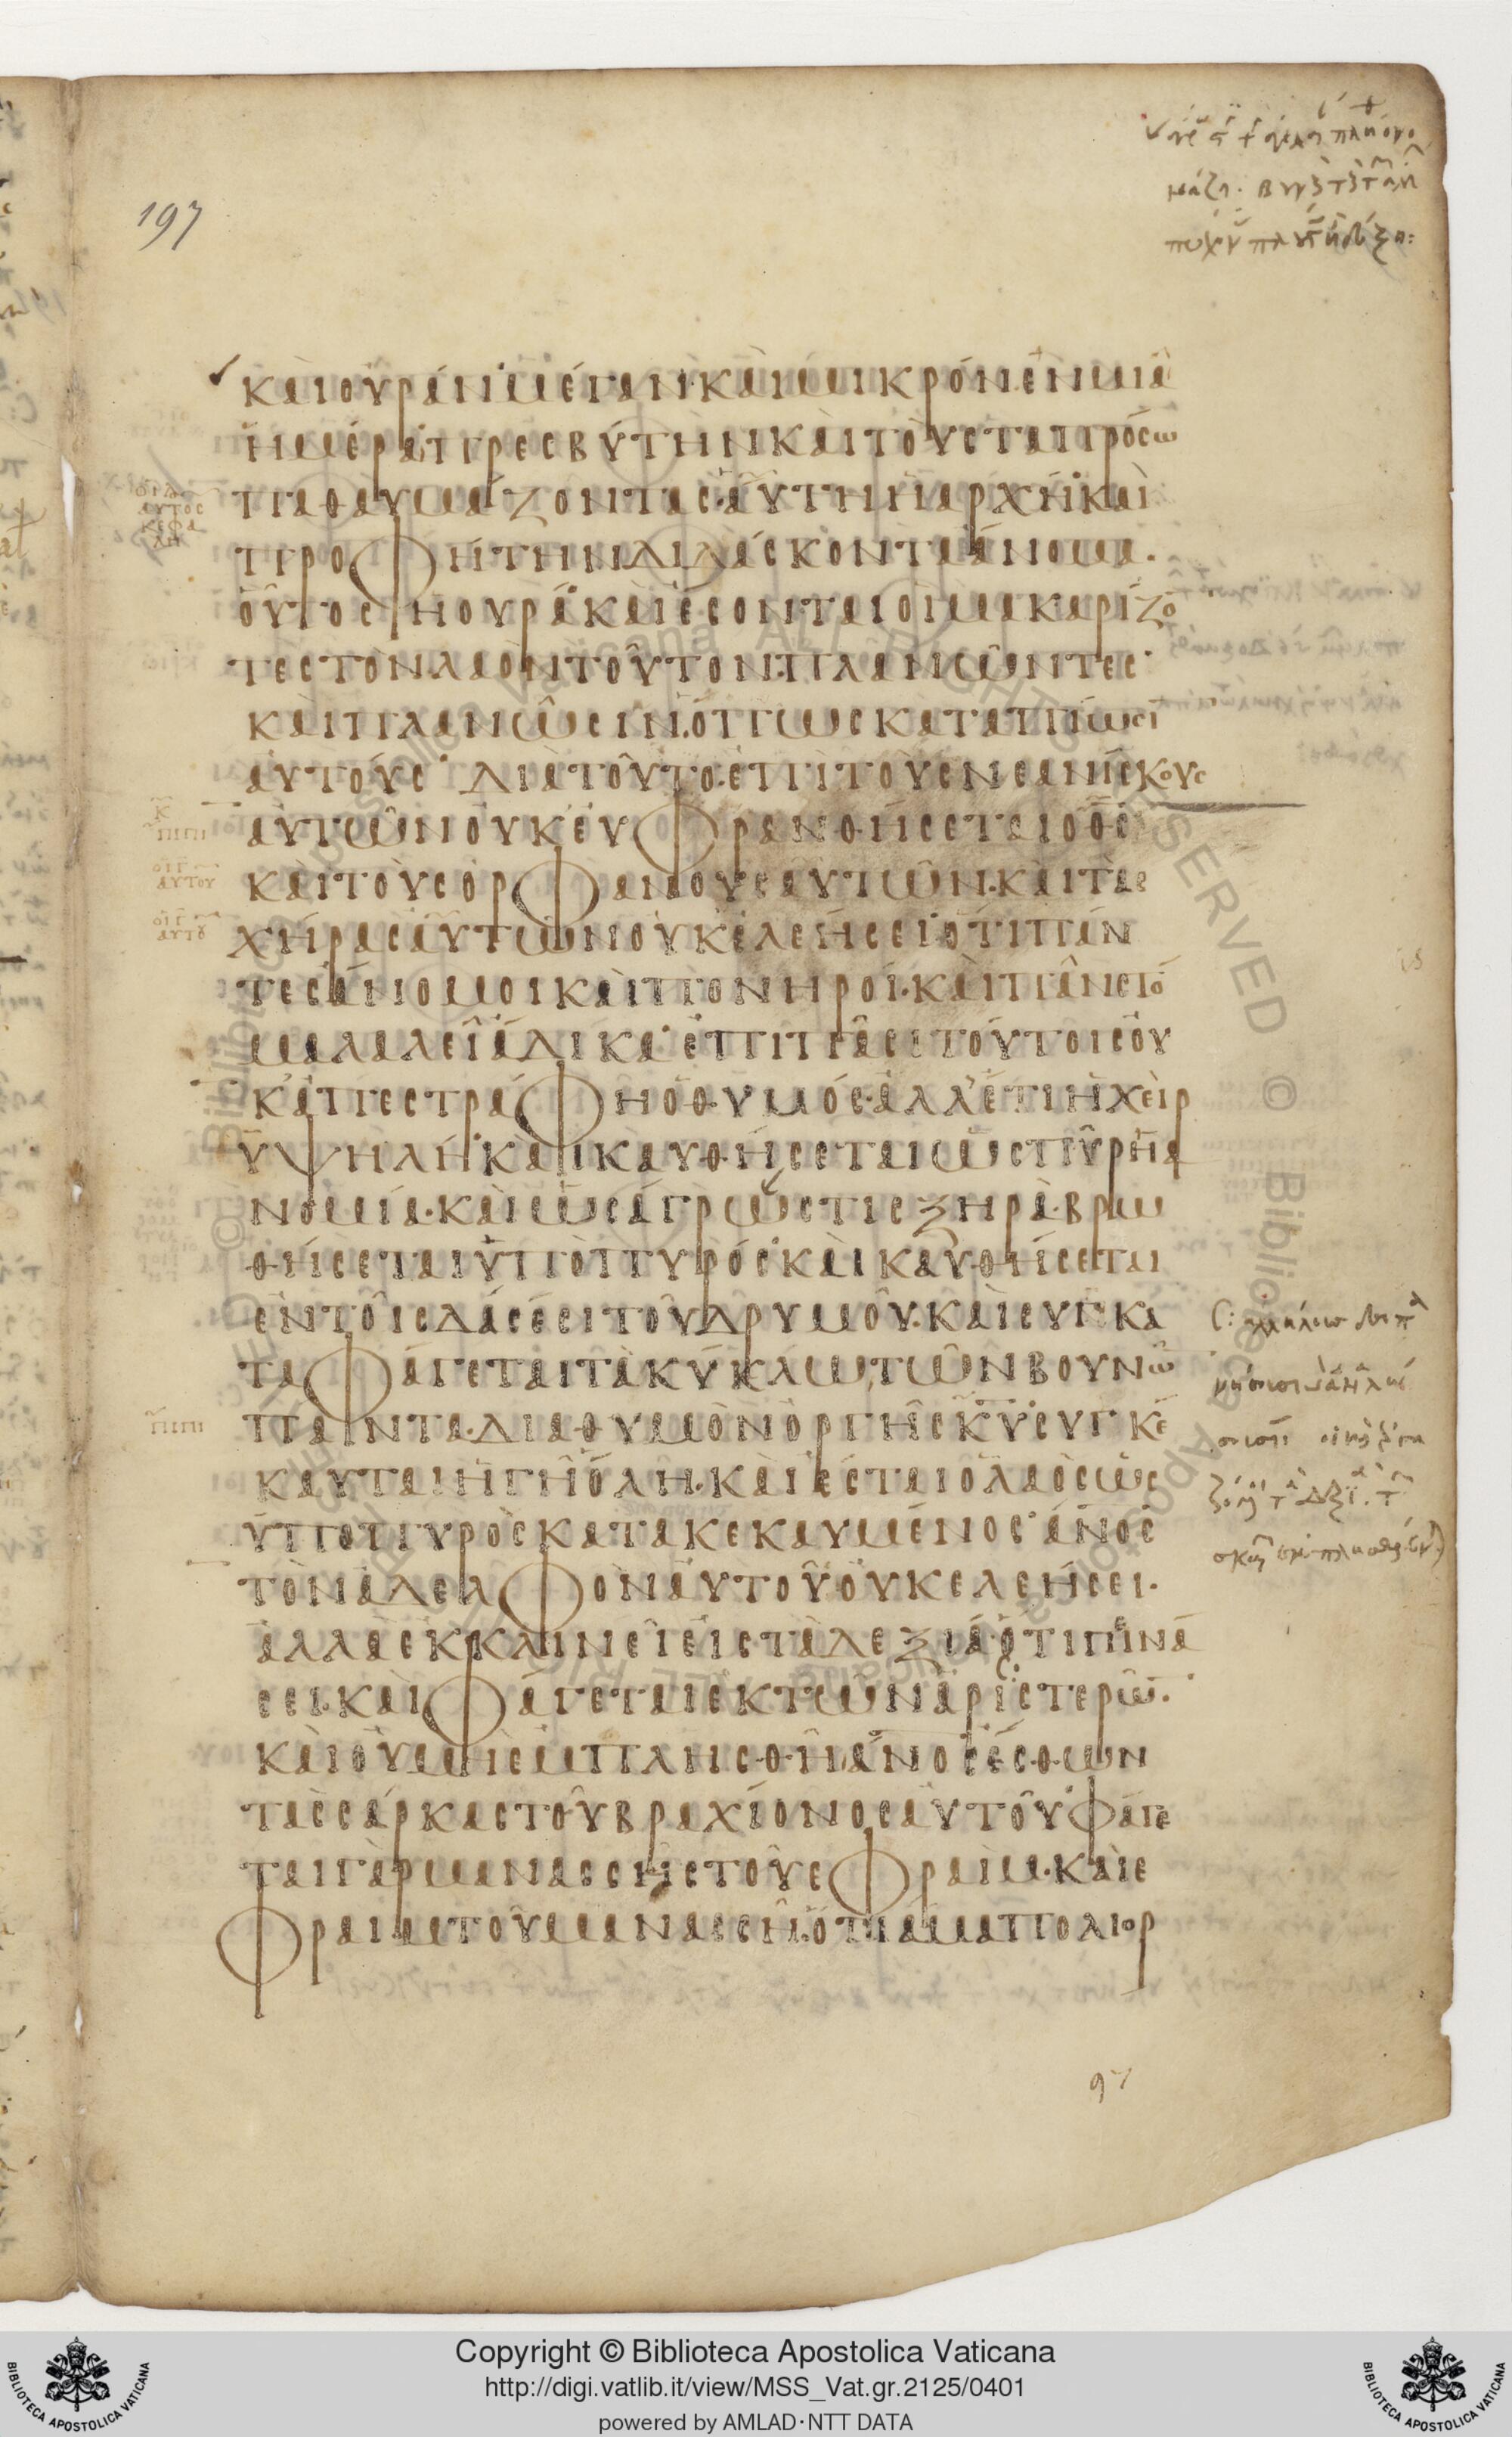 197
καὶ οὐρὰν μέγαν καὶ μικρὸν ἐν μιᾷ
ἡμέρᾳ πρεσβύτην καὶ τοὺς τὰ πρόσω
πα θαυμάζοντας αὕτη ἡ ἀρχή καὶ
προφήτην διδάσκοντα ἄνομα.
οὗτος ἡ οὐρά καὶ ἔσονται οἱ μακαρίζο
τες τὸν λαὸν τοῦτον πλανῶντες
καὶ πλανῶσιν ὅπως καταπίωσι
αὐτούς διὰ τοῦτο ἐπὶ τοὺς νεανίσκους
αὐτῶν οὐκ εὐφρανθήσεται ὁ θς
καὶ τοὺς ὀρφανοὺς αὐτῶν καὶ τὰς
χήρας αὐτῶν οὐκ ἐλεήσει ὅτι πάν
τες ἄνομοι καὶ πονηροί καὶ πᾶν στό
μα λαλεῖ ἄδικα ἐπὶ πᾶσι τούτοις οὐ
κ ἀπεστράφη ὁ θυμός ἀλλ ἔτι ἡ χεὶρ
ὑψηλή καὶ καυθήσεται ὡς πῦρ ἡ ἀ
νομία καὶ ὡς ἄγρωστις ξηρὰ βρω
θήσεται ὑπὸ πυρός καὶ καυθήσεται
ἐν τοῖς δάσεσι τοῦ δρυμοῦ καὶ συγκα
ταφάγεται τὰ κύκλῳ τῶν βουνῶ
πάντα διὰ θυμὸν ὀργῆς κυ συγκέ
καυται ἡ γῆ ὅλη καὶ ἔσται ὁ λαὸς ὡς
ὑπὸ πυρὸς κατακεκαυμένος ἄνος
τὸν ἀδελφὸν αὐτοῦ οὐκ ἐλεήσει.
ἀλλὰ ἐκκλινεῖ εἰς τὰ δεξιά ὅτι πεινά
σει καὶ φάγεται ἐκ τῶν ἀριστερῶ.
καὶ οὐ μὴ ἐμπλησθῇ ἄνος ἔσθων
τὰς σάρκας τοῦ βραχίονος αὐτοῦ φάγε
ται γὰρ μανασσης τοῦ εφραιμ καὶ ε
φραιμ τοῦ μανασσῆ ὅτι ἅμα πολιορ
97
Copyright © Biblioteca Apostolica Vaticana
http://digi.vatlib.it/view/MSS_Vat.gr.2125/0401
powered by AMLAD·NTT DATA